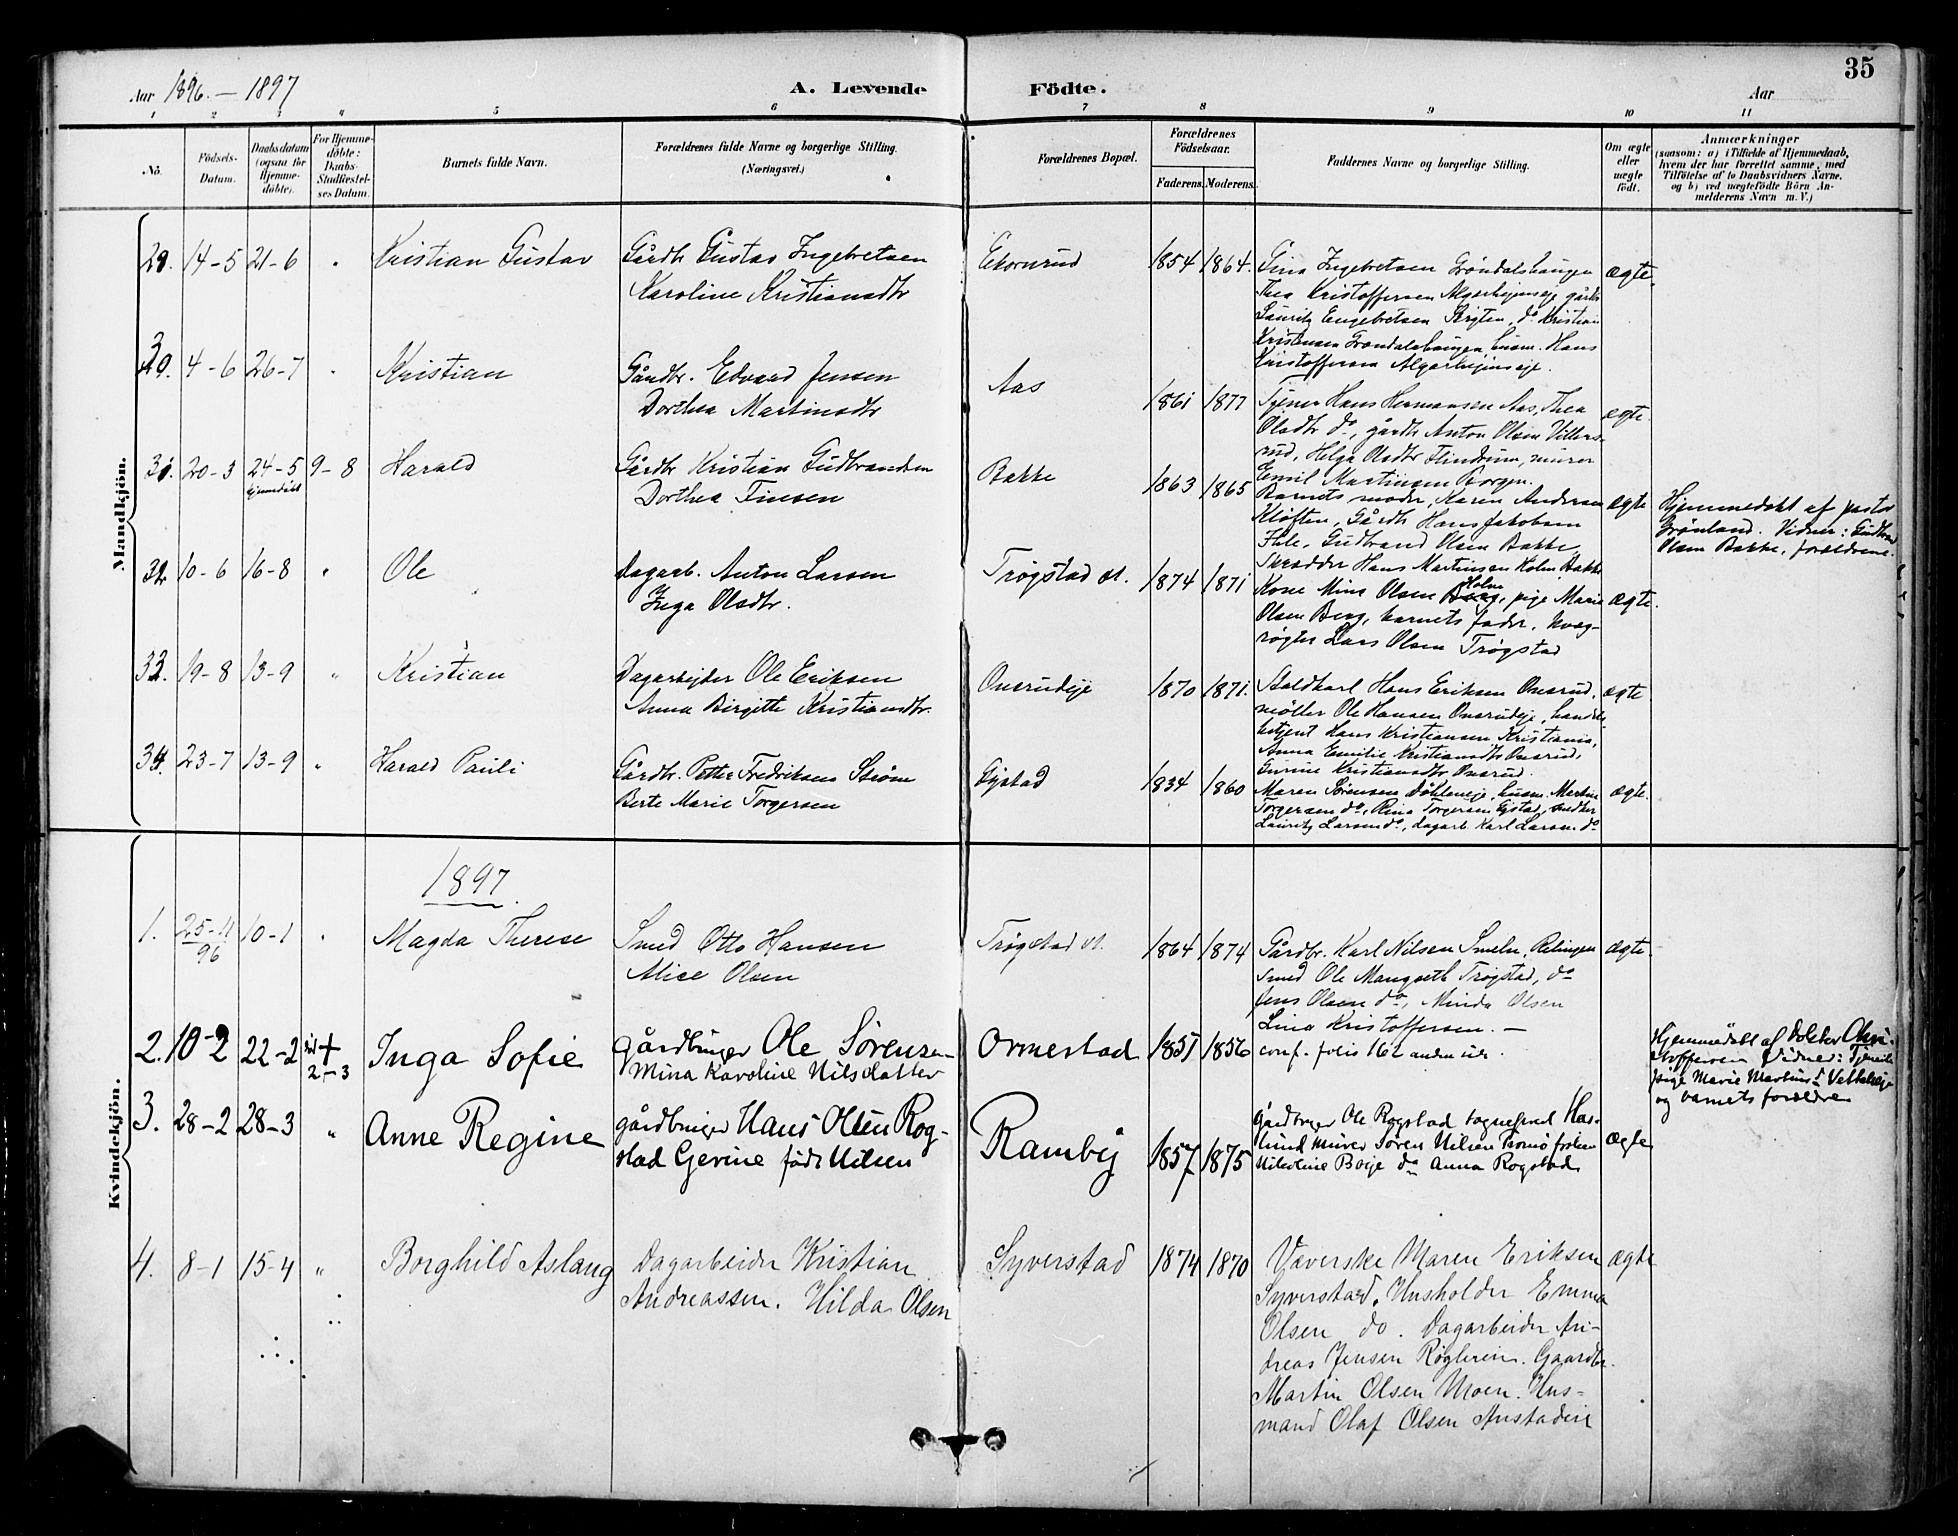 35
Aar 1896. — 1897
A. Levende Födte.
Aar
1 2 3 4 5 6 7 8 9 10 11
No.
Födsels-Datum.
Daabsdatum (ogsaa for Hjemme-döbte).
For Hjemme-döbte: Daabs-Stadfæstel-ses Datum.
Barnets fulde Navn.
Forældrenes fulde Navne og borgerlige Stilling. (Næringsvei.)
Forældrenes Bopæl.
Forældrenes Födselsaar.
Faderens. Moderens.
Faddernes Navne og borgerlige Stilling.
Om ægte eller uægte födt.
Anmærkninger
(saasom: a) i Tilfælde af Hjemmedaab, hvem der har forrettet samme, med Tilföielse af to Daabsvidners Navne, og b) ved uægtefödte Börn An-melderens Navn m.V.)
Mandkjön.
29. 14-5 21-6 Kristian Gustav
Gårdbr Gustav Ingebretsen
Karoline Kristiansdtr
Ekornrud 1854 1864.
Gina Ingebretsen Grøndalshaugen
Thea Kristoffersen Algarheimseje gårdb
Lauritz Engebretsen Skryten, do Kristian
Kristensen Grøndalshaugen, husm. Hans
Kristoffersen Algarheimseje.
ægte.
30. 4-6 26-7 Kristian
Gårdbr. Edvard Jensen
Dorthea Martinsdtr
Aas 1861 1877
Tjener Hans Hermansen Aas, Thea
Olsdtr do, gårdb Anton Olsen Villers-
rud, Helga Olsdtr Flindrum, murer
Emil Martinsen Borgen.
ægte
31. 20-3 24-5 hjemmedøbt 9-8 Harald
Gårdbr Kristian Gudbrandsen
Dorthea Finsen
Bakke 1863 1865
Barnets moder, Karen Andersen
Kløften, Gårdb Hans Jakobsen
Hole, Gudbrand Olsen Bakke,
Skrædder Hans Martinsen Holm Bakke
ægte
Hjemmedøbt af pastor
Grønland. Vidner: Gudbrand
Olsen Bakke, forældrene.
32. 10-6 16-8 " Ole
Dagarb. Anton Larsen
Inga Olsdtr.
Trøgstad 1874 1871
Kone Mina Olsen Holm, pige Marie
Olsen Berg, barnets fader, kvæg-
røgter Lars Olsen Trøgstad
ægte.
33. 19-8 13-9 " Kristian
Dagarbejder Ole Eriksen
Anna Birgitte Kristiansdtr.
Onsrudeje 1870 1871.
Staldkarl Hans Eriksen Onsrud,
møller Ole Hansen Onsrudeje, handels-
betjent Hans Kristiansen Kristiania,
Anna Emilie Kristiansdtr Onsrud,
Kristiansdtr Onsrud.
ægte
34. 23-7 13-9 " Harald Pauli
Gårdbr. Petter Fredriksen Strøm
Berte Marie Torgersen
Gystad 1834 1860
Maren Sørensen Døhleneje, husm. Martin
Torgersen do, Rina Torgersen Gystad, snedker
Lauritz Larsen do, dagarb. Karl Larsen do
ægte.
1897.
Kvindekjön.
1. 25-11 96 10-1 Magda Therese
Smed Otto Hansen
Alice Olsen
Trøgstad 1864 1874
Gårdbr. Karl Nilsen Rælingen
Smed Ole Trøgstad, do
Jens Olsen do, Minda Olsen
Lina Kristoffersen. —
ægte.
2. 10-2 22-2 2-3 Inga Sofie
gårdbruger Ole Sørensen
Mina Karoline Nilsdatter
Ormestad 1851 1856
conf. folio 162
Hjemmedøbt af Doktor Chri-
stoffersen Vidner: Tjeneste
pige Marie Vetteleje
og barnets forældre
3. 28-2 28-3 " Anne Regine
gårdbruger Hans Olsen Rog-
stad Gerine født Nilsen
Ramby 1857 1875
gårdbruger Ole Rogstad
murer Søren Nilsen frøken
Nikoline do Anna Rogstad
ægte
4. 8-1 15-4 " Borghild Aslaug
Dagarbeider Kristian
Andreassen. Hilda Olsen
Syverstad 1874 1870
Væverske Maren Eriksen
Syverstad. Husholder Emma
Olsen do. Dagarbeider An-
dreas Jensen Gaardbr.
Martin Olsen Moen. Hus-
mand Olaf Olsen
ægte